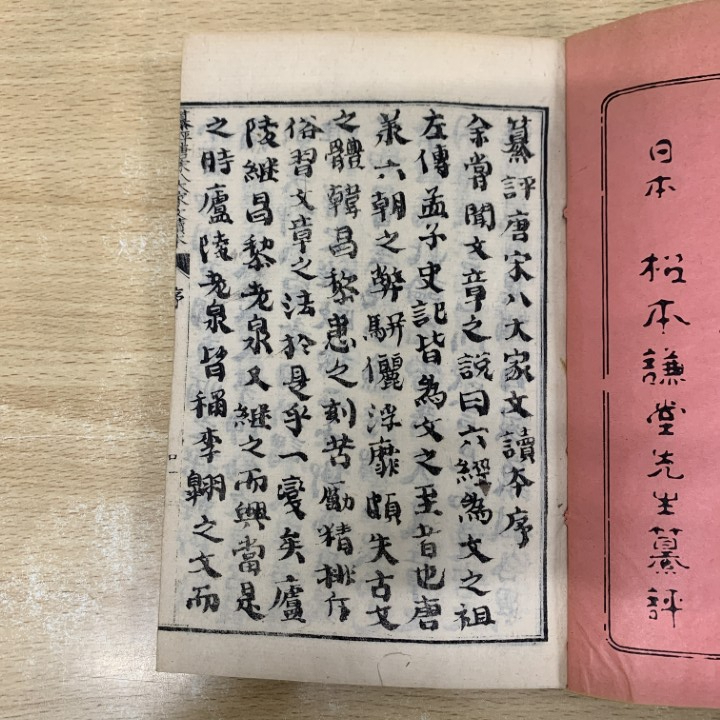 日本 松本謙堂先生纂評
纂評唐宋八大家文讀本序
余嘗聞文章之說曰六經為文之祖
左傳孟子史記皆為文之至者也唐
承六朝之弊駢儷浮靡頗失古文
之體韓昌黎患之刻苦勵精排斥
俗習文章之法於是乎一變矣廬
陵繼昌黎老泉又繼之而興當是
之時廬陵老泉皆稱李翺之文而
纂評唐宋八大家文讀本 序